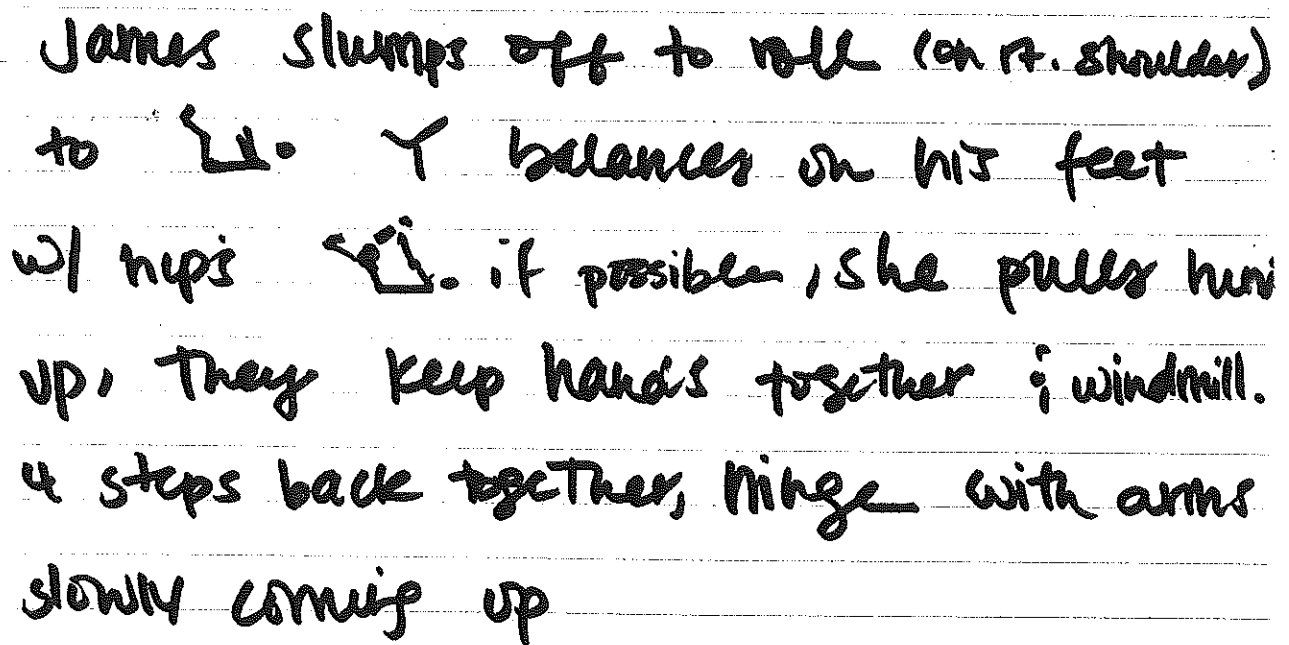 James slumps off to roll (on rt. shoulder)
to Y balances on his feet
w/ hips if possible, she pulls him
up, They keep hands together ; windmill.
4 steps back together, hinge with arms
slowly coming up